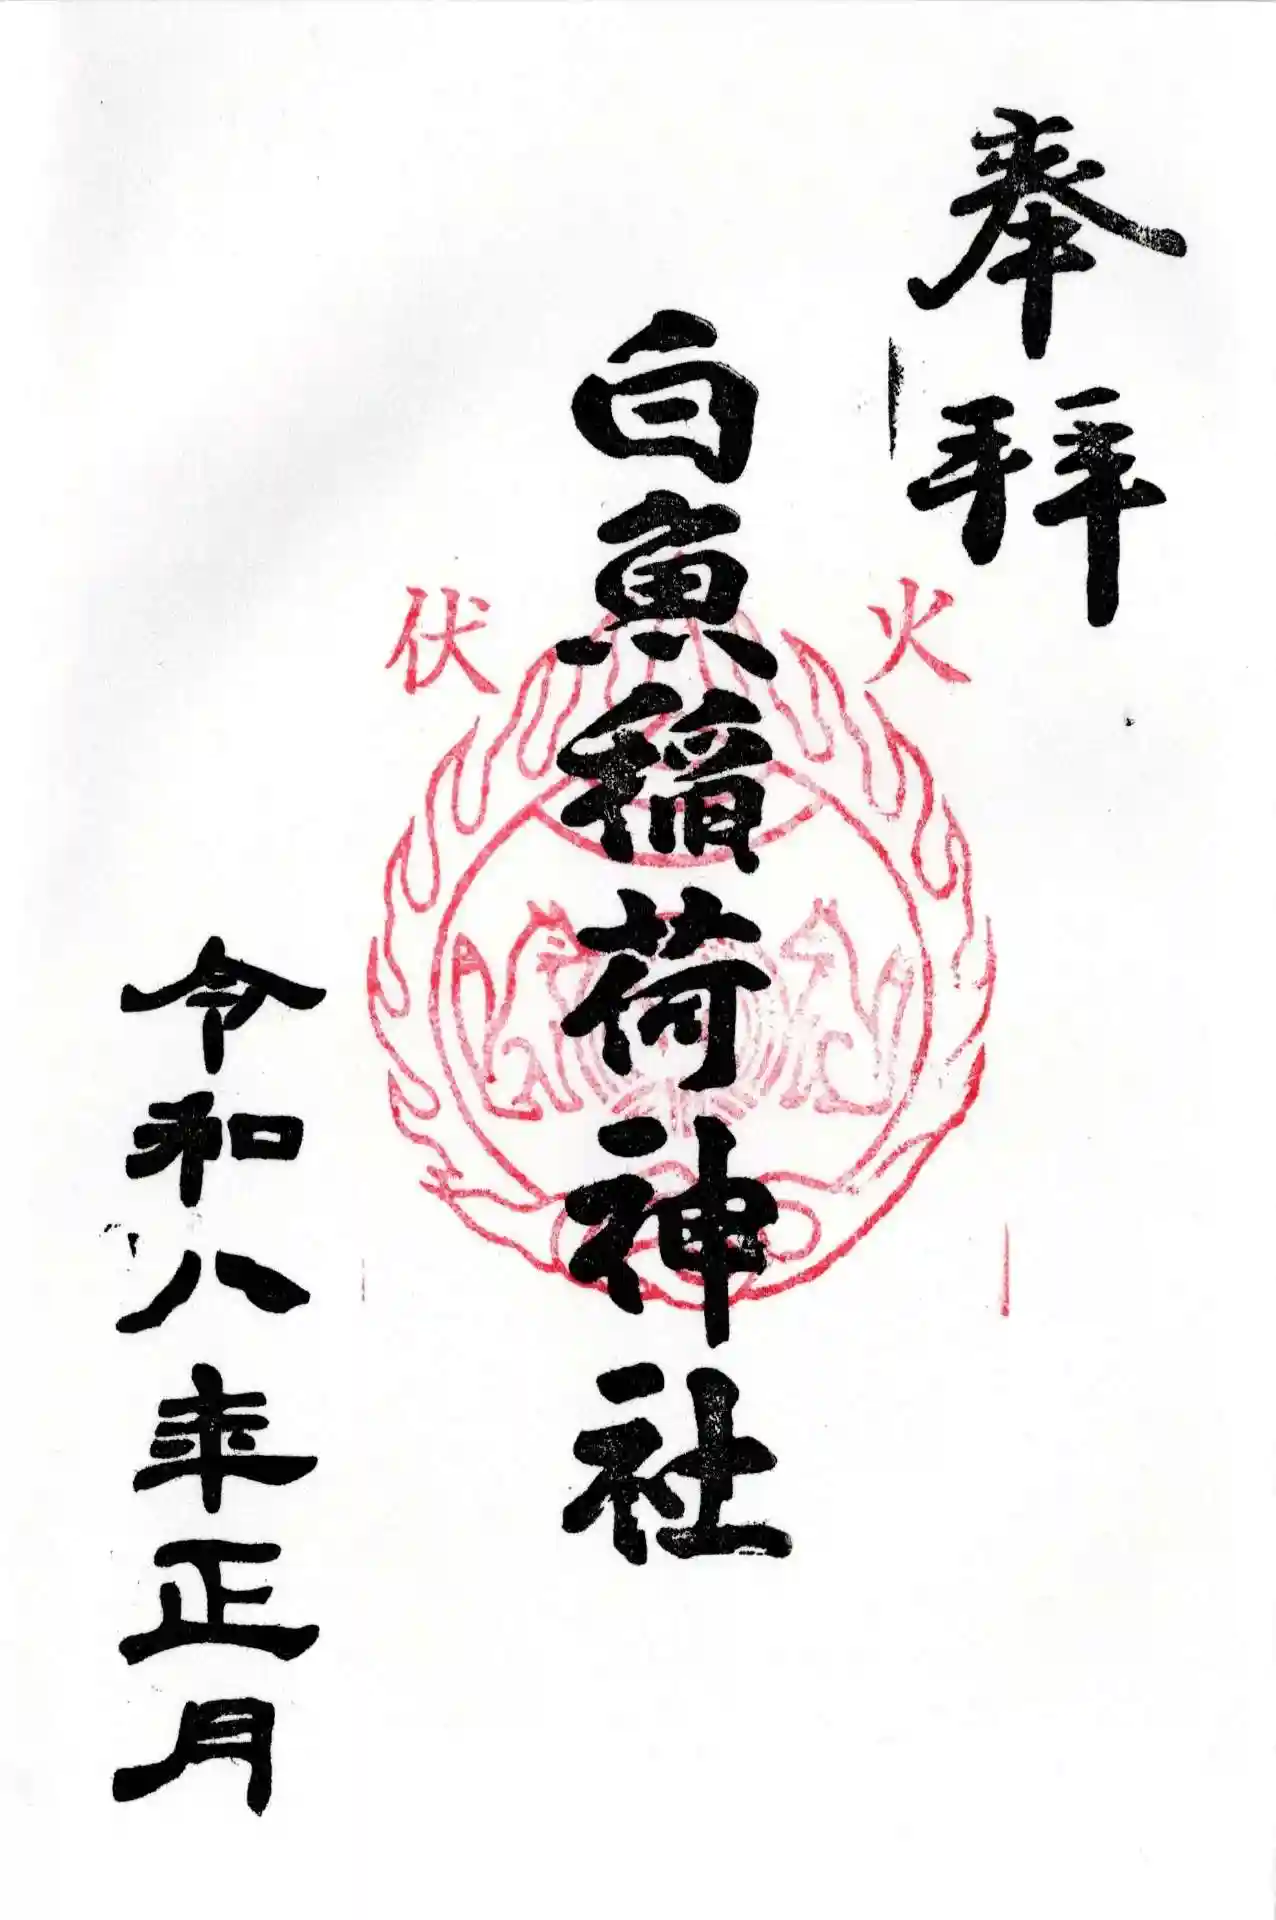 奉拜
火伏
白魚稲荷神社
令和八年正月